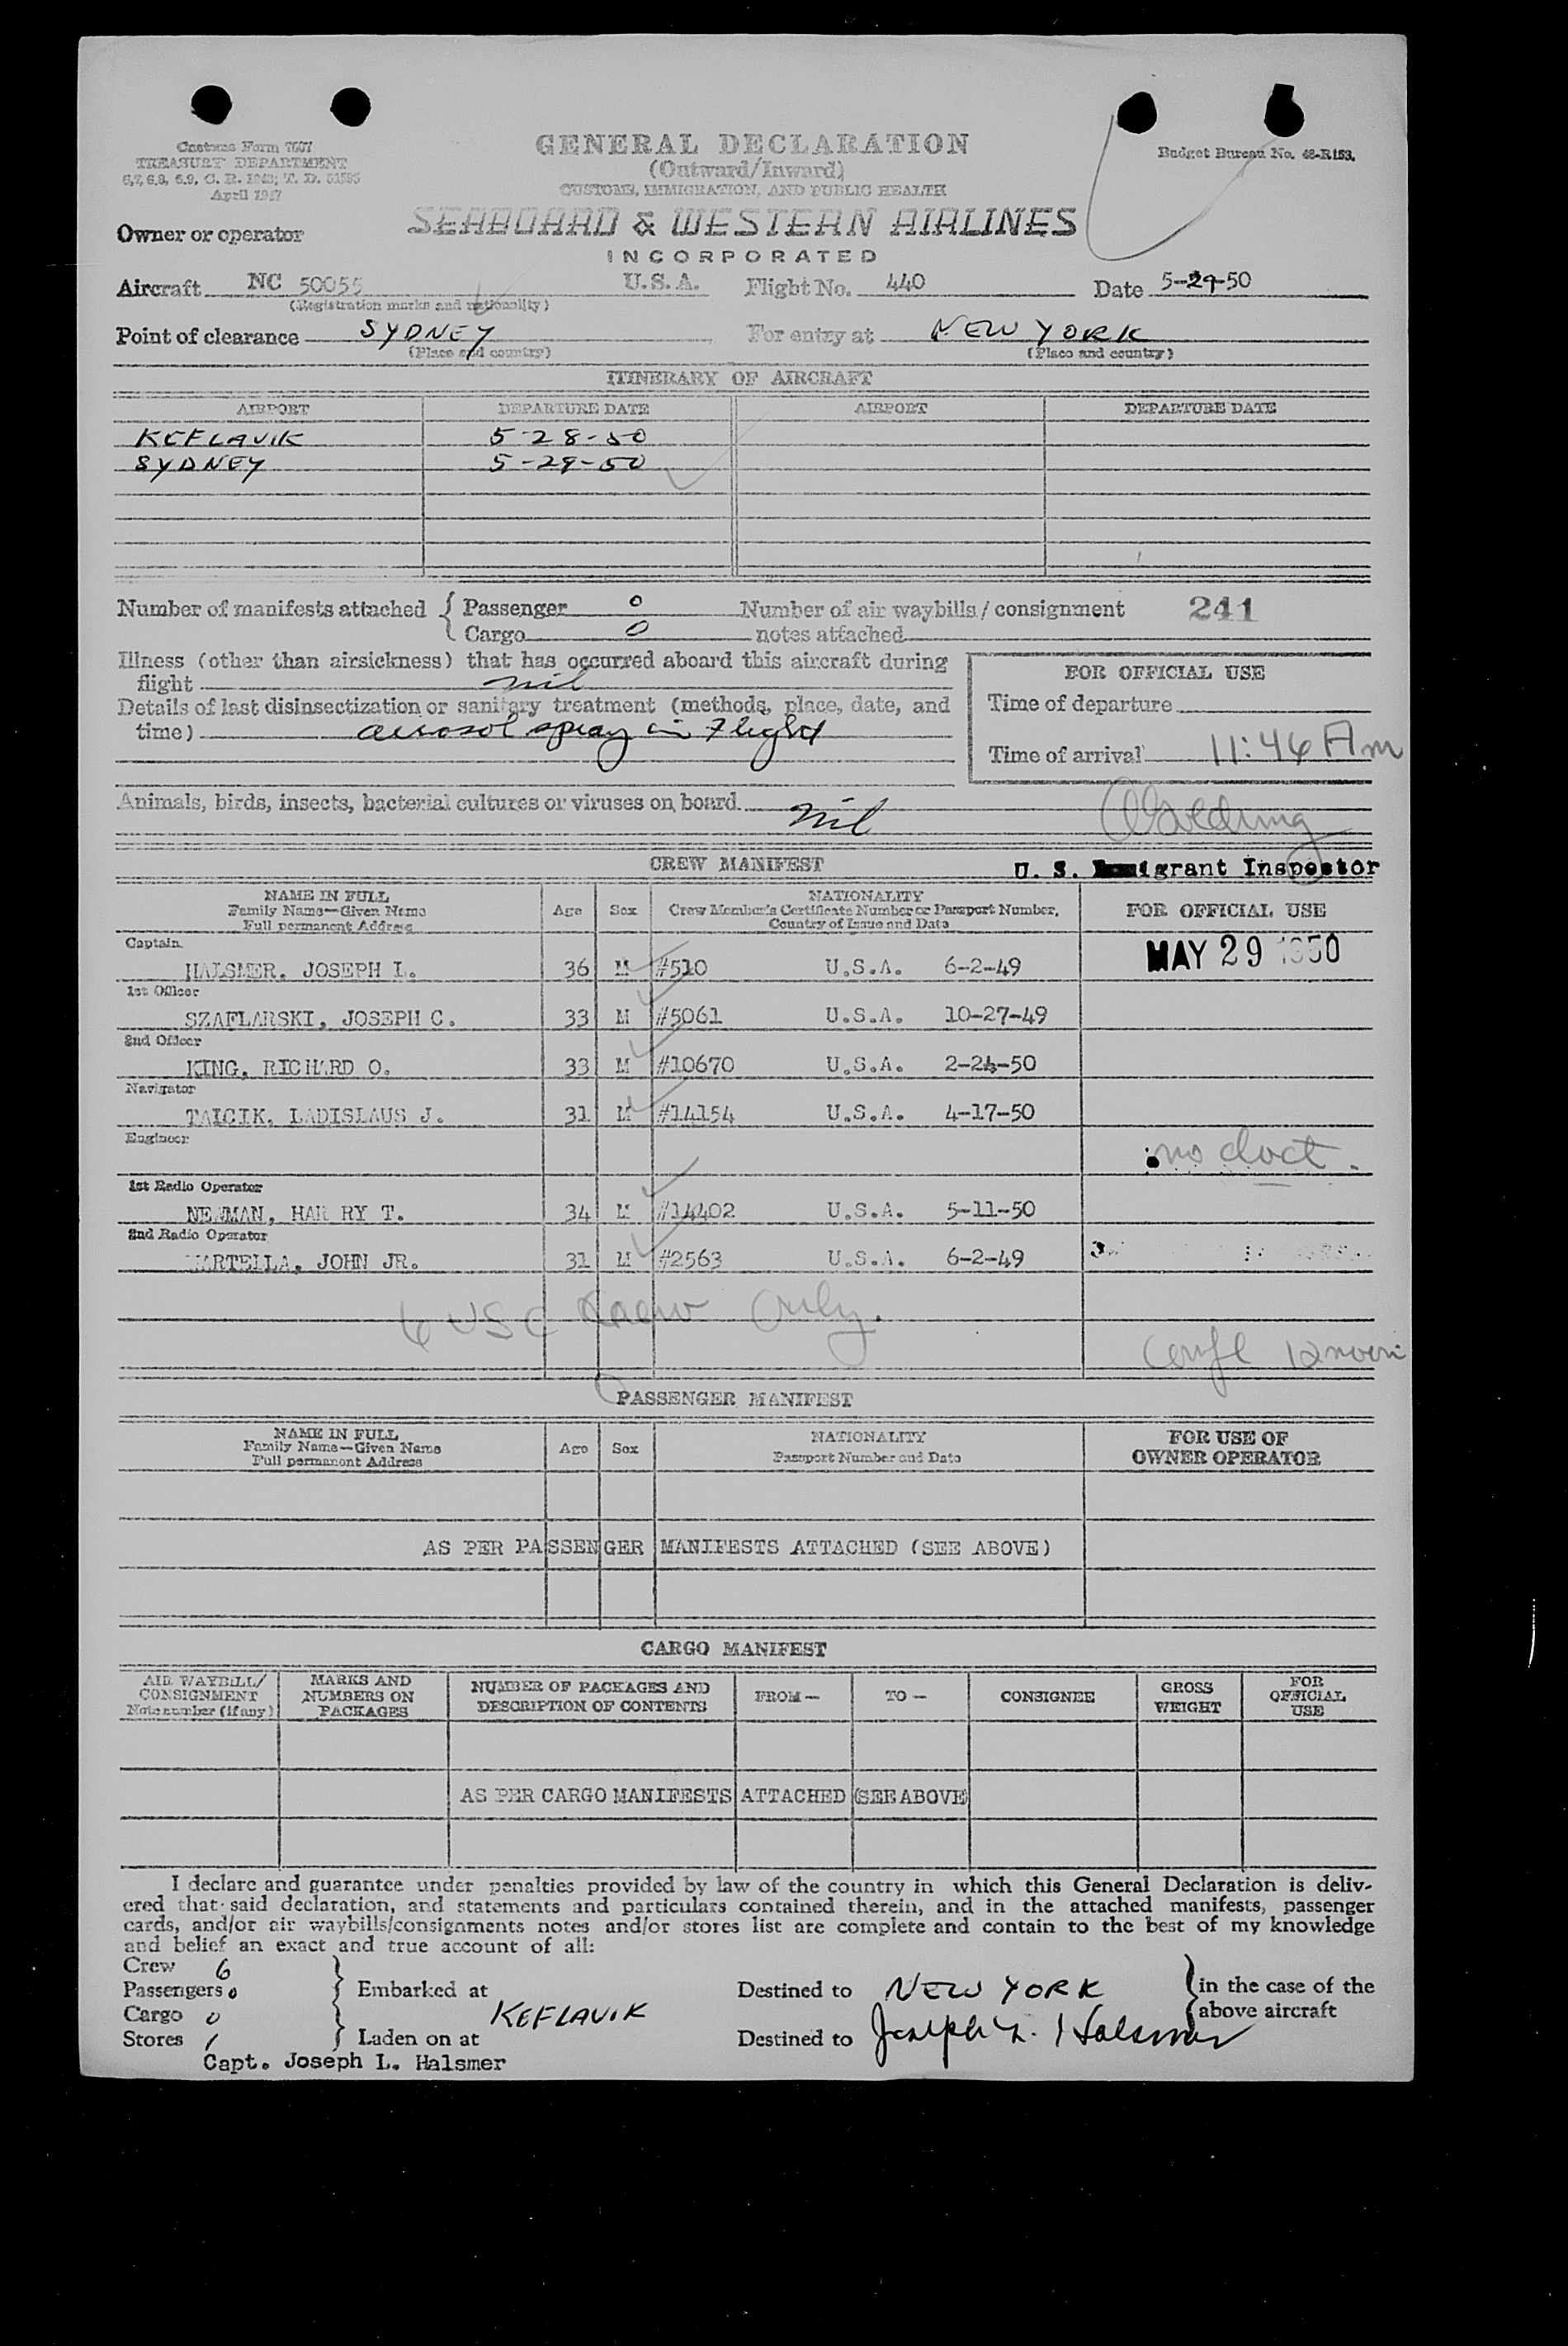 Customs Form 7507
TREASURY DEPARTMENT
April 1947
GENERAL DECLARATION
(Outward/Inward)
CUSTOMS, IMMIGRATION, AND PUBLIC HEALTH
Budget Bureau No. 48-R153.
Owner or operator SEABOARD & WESTERN AIRLINES
INCORPORATED
Aircraft NC 50055 U.S.A. Flight No. 440 Date 5-29-50
(Registration marks and nationality)
Point of clearance SYDNEY For entry at NEW YORK
(Place and country) (Place and country)
ITINERARY OF AIRCRAFT
AIRPORT DEPARTURE DATE AIRPORT DEPARTURE DATE
KEFLAVIK 5-28-50
SYDNEY 5-29-50
Number of manifests attached { Passenger 0 Number of air waybills / consignment 241
Cargo 0 notes attached
Illness (other than airsickness) that has occurred aboard this aircraft during
flight nil
FOR OFFICIAL USE
Details of last disinsectization or sanitary treatment (methods, place, date, and
time) aerosol spray in flight
Time of departure
Time of arrival 11:46 Am
Animals, birds, insects, bacterial cultures or viruses on board nil
CREW MANIFEST
U. S. Immigrant Inspector
NAME IN FULL
Family Name—Given Name
Full permanent Address
Age Sex
NATIONALITY
Crew Member's Certificate Number or Passport Number,
Country of Issue and Date
FOR OFFICIAL USE
MAY 29 1950
Captain
HALSMER, JOSEPH L. 36 M #510 U.S.A. 6-2-49
1st Officer
SZAFLARSKI, JOSEPH C. 33 M #5061 U.S.A. 10-27-49
2nd Officer
KING, RICHARD O. 33 M #10670 U.S.A. 2-24-50
Navigator
TAICIK, LADISLAUS J. 31 M #14154 U.S.A. 4-17-50
Engineer
no doct.
1st Radio Operator
NEWMAN, HARRY T. 34 M #14402 U.S.A. 5-11-50
2nd Radio Operator
MARTELLA, JOHN JR. 31 M #2563 U.S.A. 6-2-49
6 USC Only.
PASSENGER MANIFEST
NAME IN FULL
Family Name—Given Name
Full permanent Address
Age Sex
NATIONALITY
Passport Number and Date
FOR USE OF
OWNER OPERATOR
AS PER PASSENGER MANIFESTS ATTACHED (SEE ABOVE)
CARGO MANIFEST
AIR WAYBILL/
CONSIGNMENT
Note number (if any)
MARKS AND
NUMBERS ON
PACKAGES
NUMBER OF PACKAGES AND
DESCRIPTION OF CONTENTS
FROM —
TO —
CONSIGNEE
GROSS
WEIGHT
FOR
OFFICIAL
USE
AS PER CARGO MANIFESTS ATTACHED (SEE ABOVE)
I declare and guarantee under penalties provided by law of the country in which this General Declaration is deliv-
ered that said declaration, and statements and particulars contained therein, and in the attached manifests, passenger
cards, and/or air waybills/consignments notes and/or stores list are complete and contain to the best of my knowledge
and belief an exact and true account of all:
Crew 6
Passengers 0 } Embarked at Destined to NEW YORK } in the case of the
Cargo 0 KEFLAVIK above aircraft
Stores 1 } Laden on at Destined to Joseph L. Halsmer
Capt. Joseph L. Halsmer